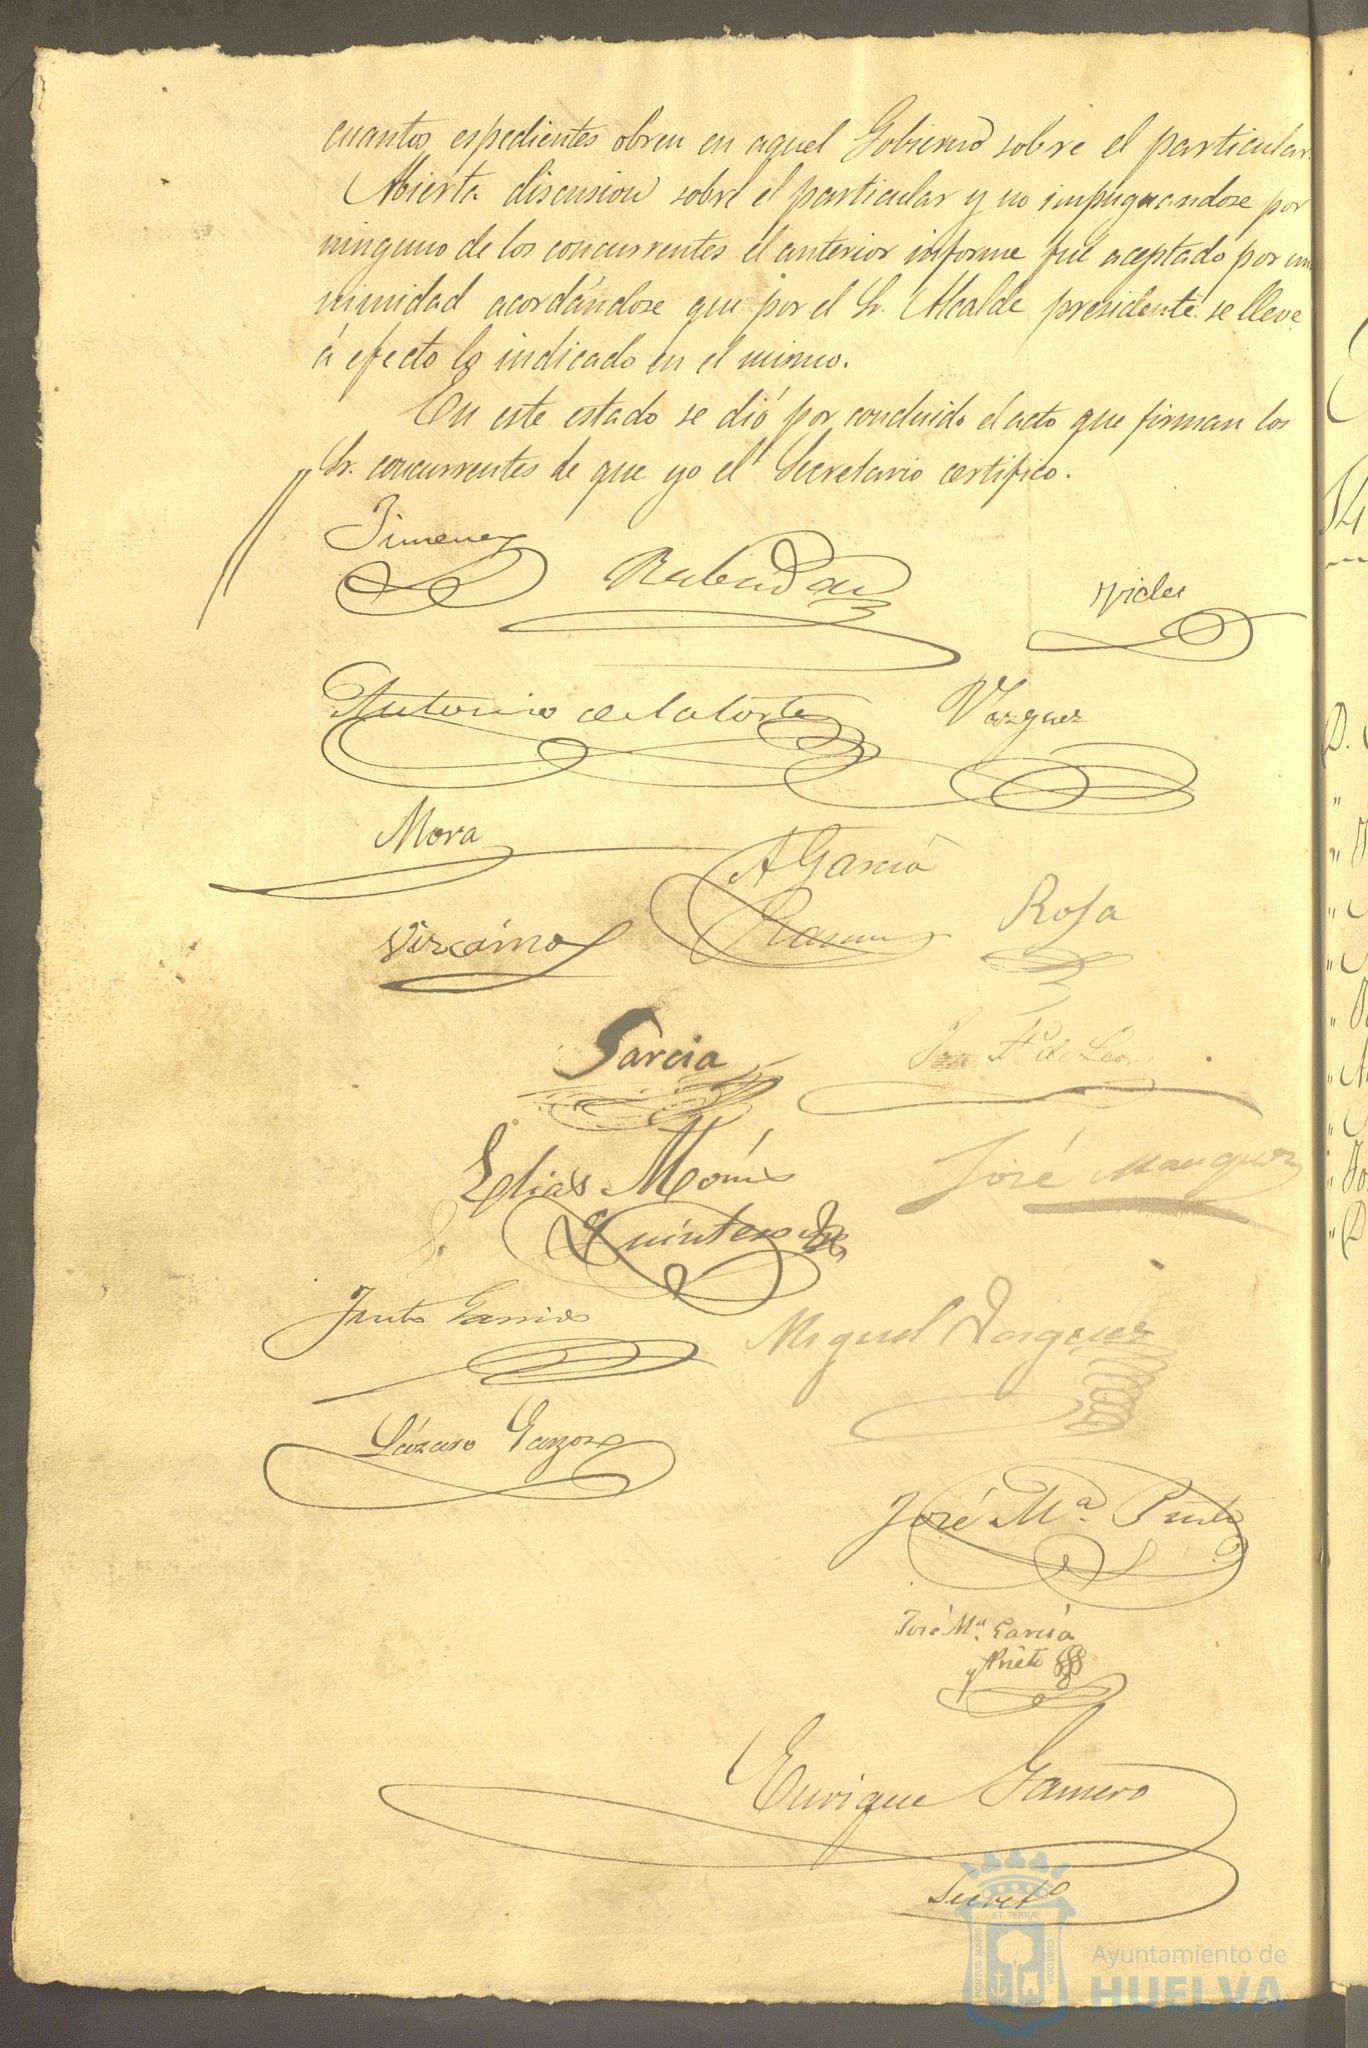 cuantos espedientes obren en aquel Gobierno sobre el particular.
Abierta discusion sobre el particular y no impugnandose por
ninguno de los concurrentes el anterior informe fué aceptado por una
nimidad acordándose que por el Sr. Alcalde presidente se lleve
á efecto lo indicado en el mismo.
En este estado se dió por concluido el acto que firman los
Sr. concurrentes de que yo el Secretario certifico.
Jimenez
Rabadan
Antonio de la Corte
Vazquez
Mora
A Garcia
Ramos
Rosa
Vizcaino
Garcia
de Leon
Elias Monis
José Marquez
Quintero
Justo Garrido
Miguel Vazquez
Lázaro Garzon
José Mª.
José Mª. García
y Prieto
Enrique Gamero
Secretº
PORTUS MARIS
ET TERRÆ
CUSTODIA
Ayuntamiento de
HUELVA